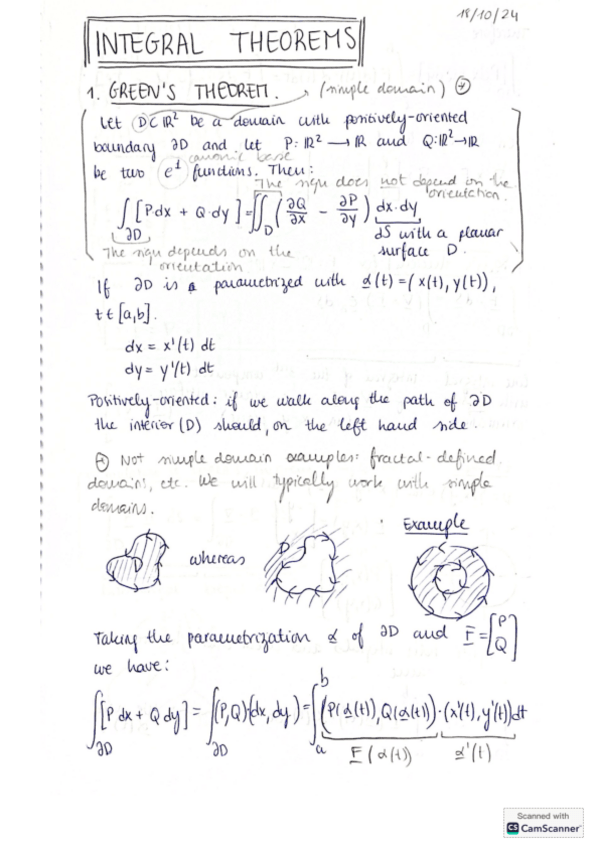 18/10/24
INTEGRAL THEOREMS
1. GREEN'S THEOREM. → (simple domain) ⊛
Let D ⊂ ℝ² be a domain with positively-oriented
boundary ∂D and let P: ℝ² → ℝ and Q: ℝ² → ℝ
canonic base
be two C¹ functions. Then:
The sign does not depend on the
orientation.
∫_∂D [Pdx + Q·dy] = ∬_D (∂Q/∂x − ∂P/∂y) dx·dy
dS with a planar
surface D.
The sign depends on the
orientation
If ∂D is a parametrized with α(t) = (x(t), y(t)),
t ∈ [a,b].
dx = x'(t) dt
dy = y'(t) dt
Positively-oriented: if we walk along the path of ∂D
the interior (D) should, on the left hand side.
⊛ Not simple domain examples: fractal-defined
domains, etc. We will typically work with simple
domains.
Example
D whereas D
Taking the parametrization α of ∂D and F = [P Q]
we have:
∫_∂D [P dx + Q dy] = ∫_∂D (P,Q)·(dx, dy) = ∫_a^b (P(α(t)), Q(α(t)))·(x'(t), y'(t)) dt
F(α(t)) α'(t)
Scanned with
CS CamScanner